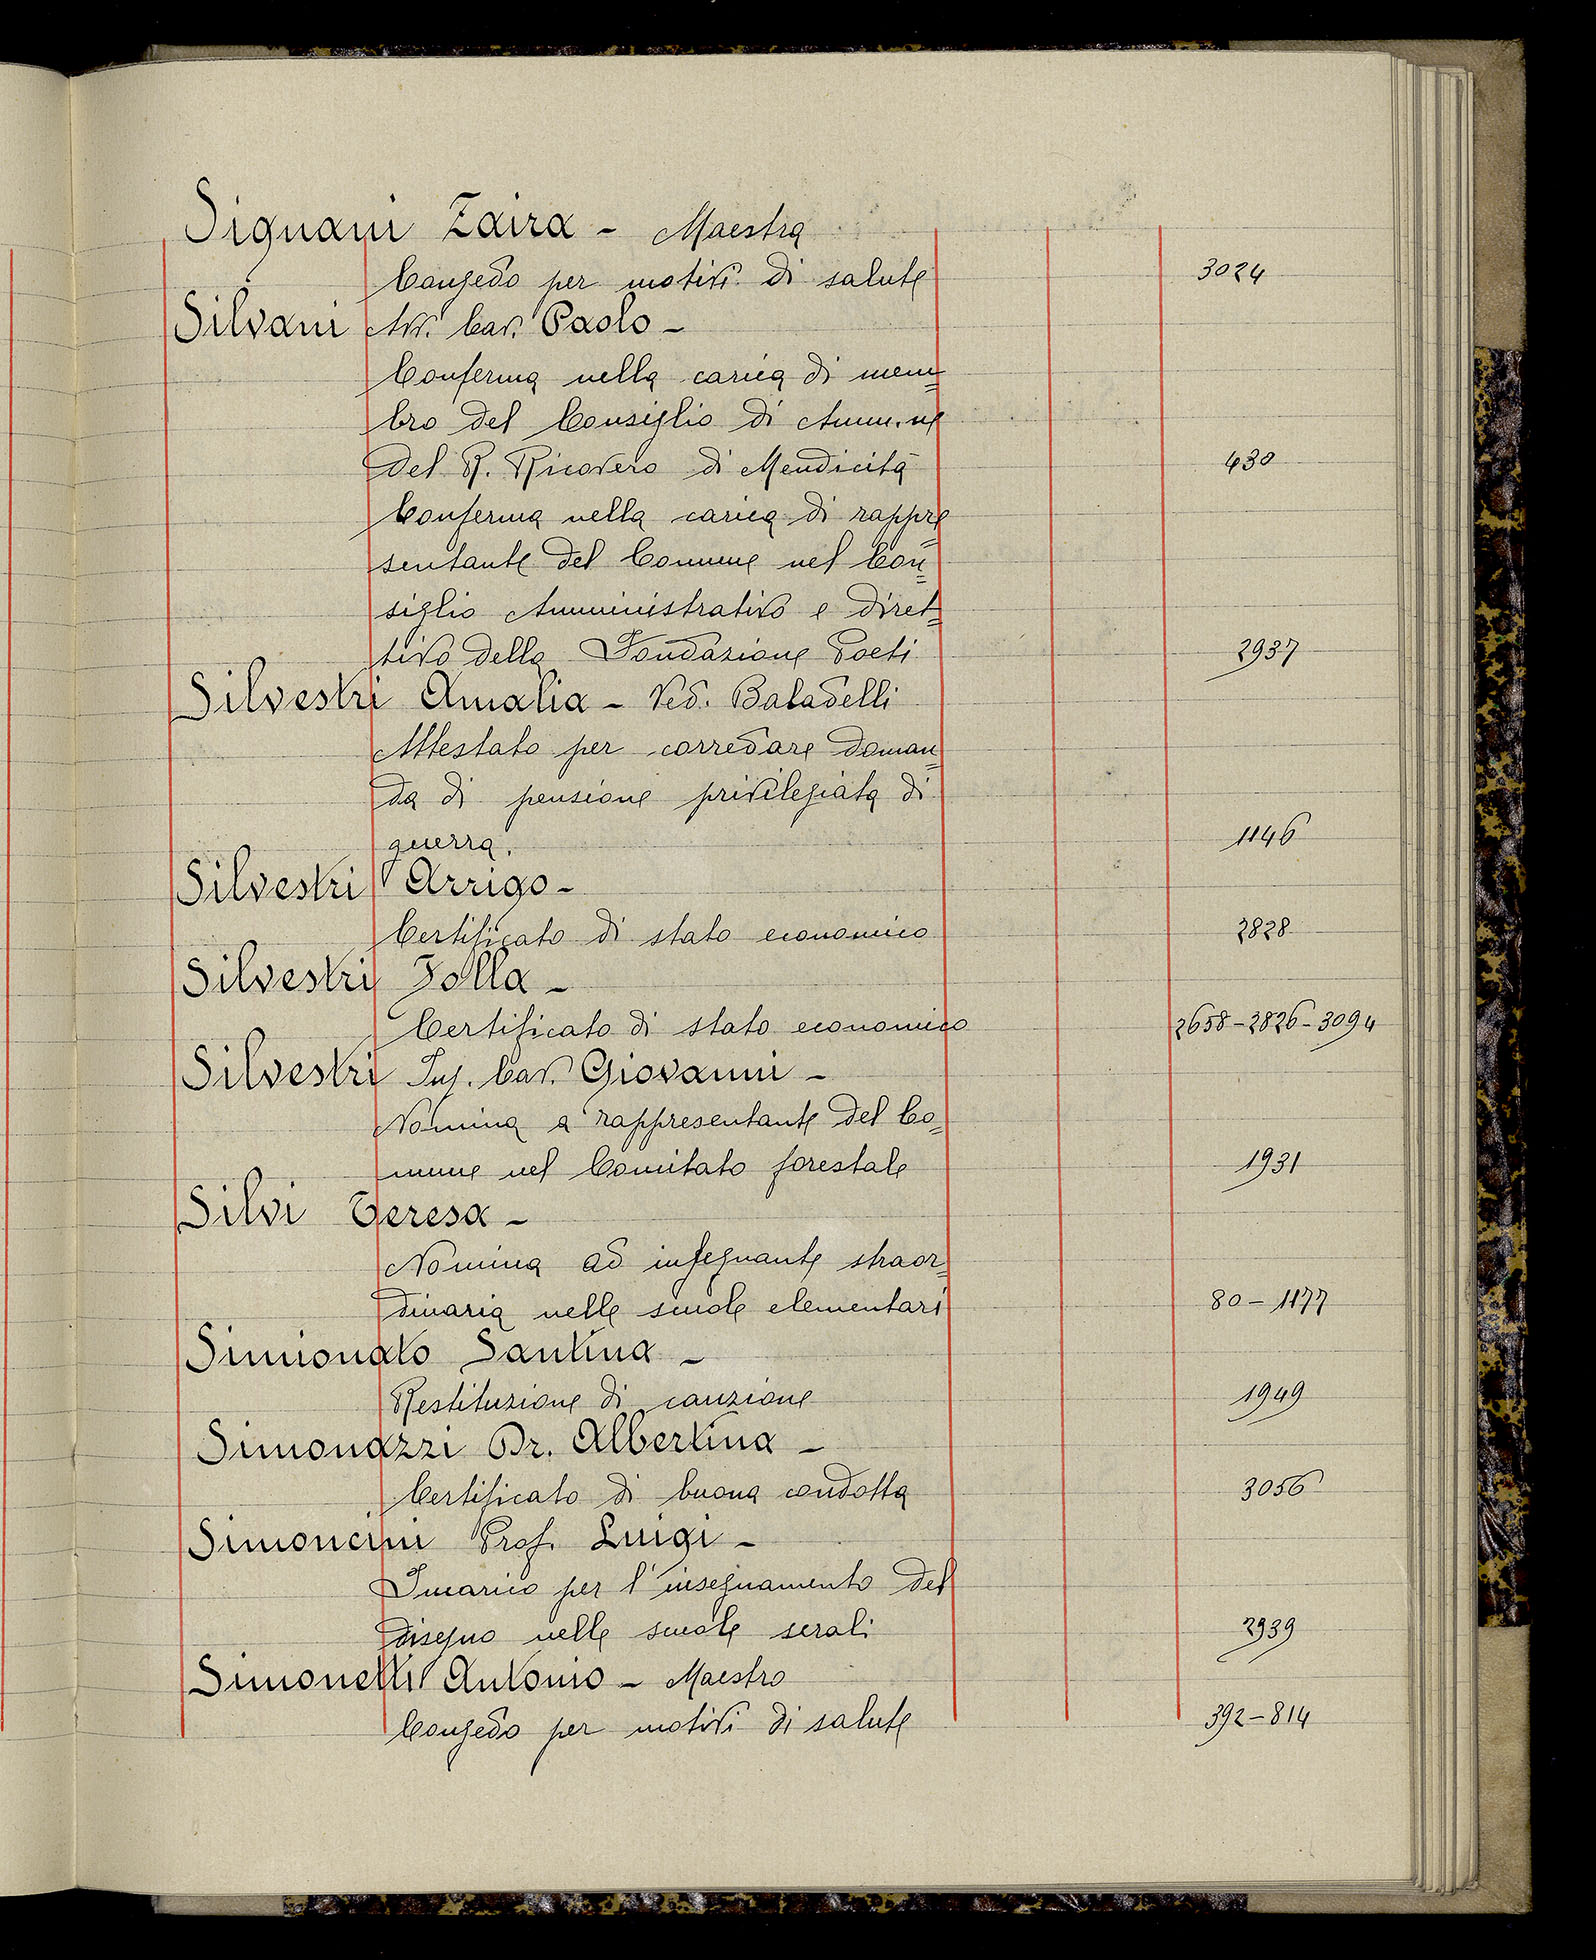 Signani Zaira - Maestra
Congedo per motivi di salute 3024
Silvani Avv. Cav. Paolo -
Conferma nella carica di mem=
bro del Consiglio di Amm.ne
del R. Ricovero di Mendicità 430
Conferma nella carica di rappre=
sentante del Comune nel Con=
siglio Amministrativo e diret=
tivo della Fondazione Poeti 2937
Silvestri Amalia - Ved. Baladelli
Attestato per corredare doman=
da di pensione privilegiata di
guerra. 1146
Silvestri Arrigo -
Certificato di stato economico 2828
Silvestri Jolla -
Certificato di stato economico 2658 - 2826 - 3094
Silvestri Ing. Cav. Giovanni -
Nomina a rappresentante del Co=
mune nel Comitato forestale 1931
Silvi Teresa -
Nomina ad insegnante straor=
dinaria nelle scuole elementari 80 - 1177
Simionato Santina -
Restituzione di cauzione 1949
Simonazzi Dr. Albertina -
Certificato di buona condotta 3056
Simoncini Prof. Luigi -
Incarico per l'insegnamento del
disegno nelle scuole serali 2939
Simonetti Antonio - Maestro
Congedo per motivi di salute 392 - 814